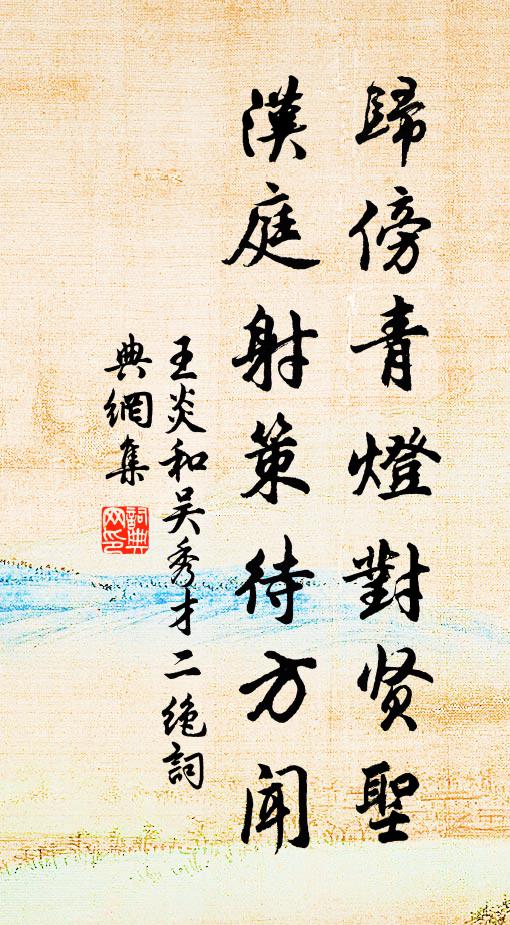 歸傍青燈對贤聖
漢庭射策待方闻
王炎和吴秀才二绝詞
典網集
詞典網印